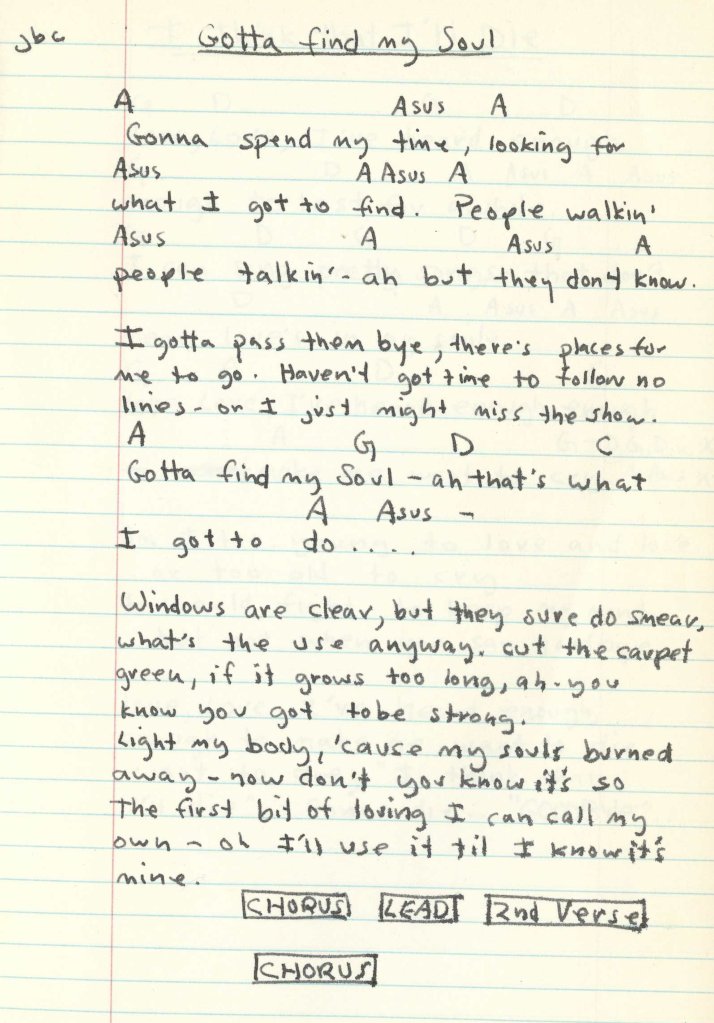 jbc
Gotta find my Soul
A Asus A
Gonna spend my time, looking for
Asus A Asus A
what I got to find. People walkin'
Asus A Asus A
people talkin' - ah but they don't know.
I gotta pass them bye, there's places for
me to go. Haven't got time to follow no
lines - or I just might miss the show.
A G D C
Gotta find my Soul - ah that's what
A Asus -
I got to do.....
Windows are clear, but they sure do smear,
what's the use anyway. cut the carpet
green, if it grows too long, ah - you
know you got tobe strong.
Light my body, 'cause my souls burned
away - now don't you know it's so
The first bit of loving I can call my
own - oh I'll use it til I know it's
mine.
CHORUS LEAD 2nd Verse
CHORUS